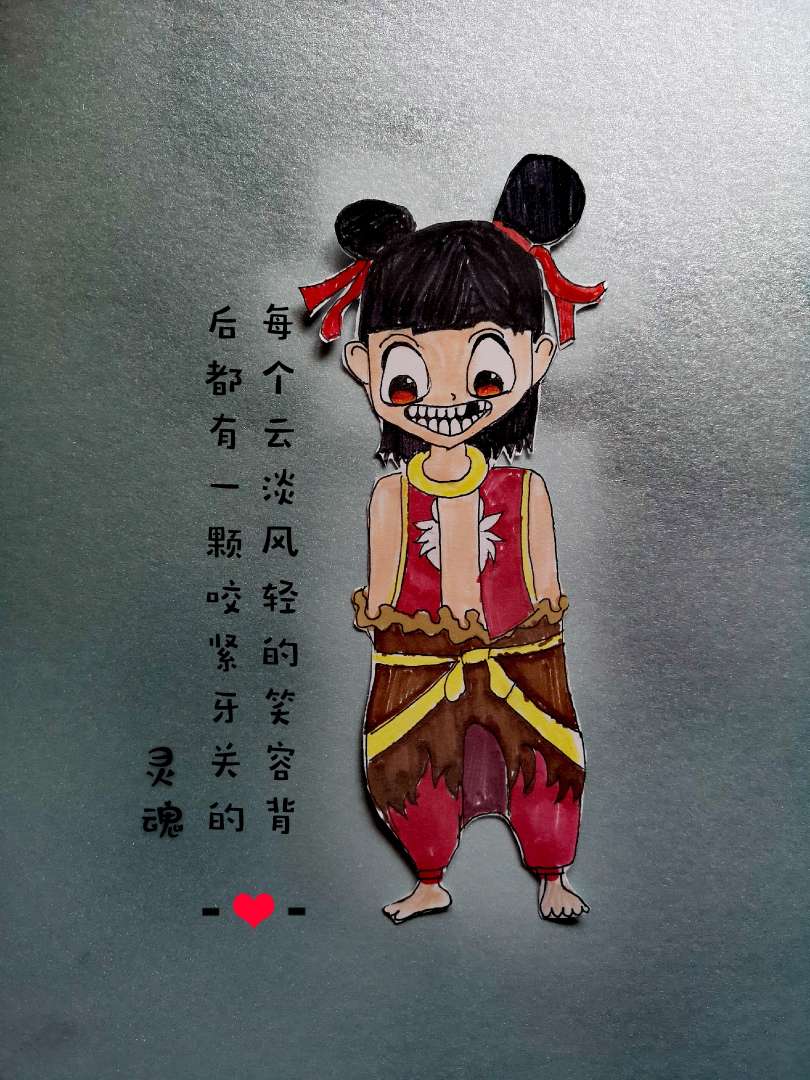 每个云淡风轻的笑容背
后都有一颗咬紧牙关的
灵魂